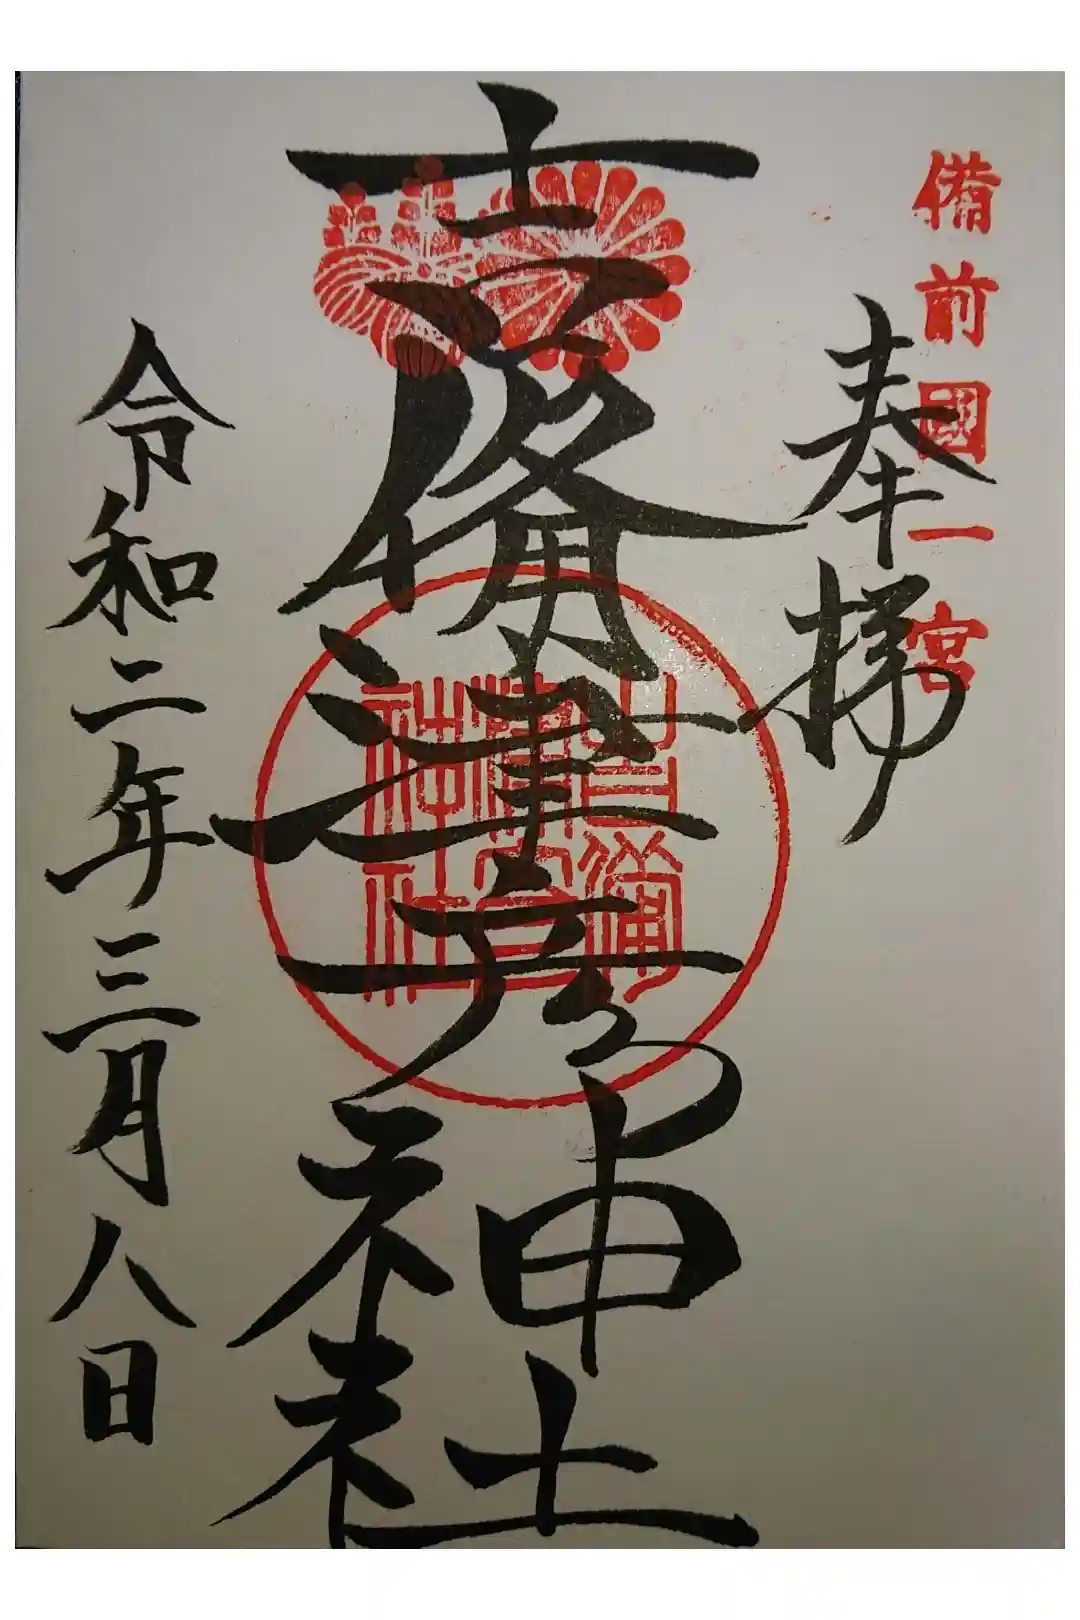 備前國一宮
奉拝
吉備津彦神社
吉備
津彦
神社
令和二年三月八日